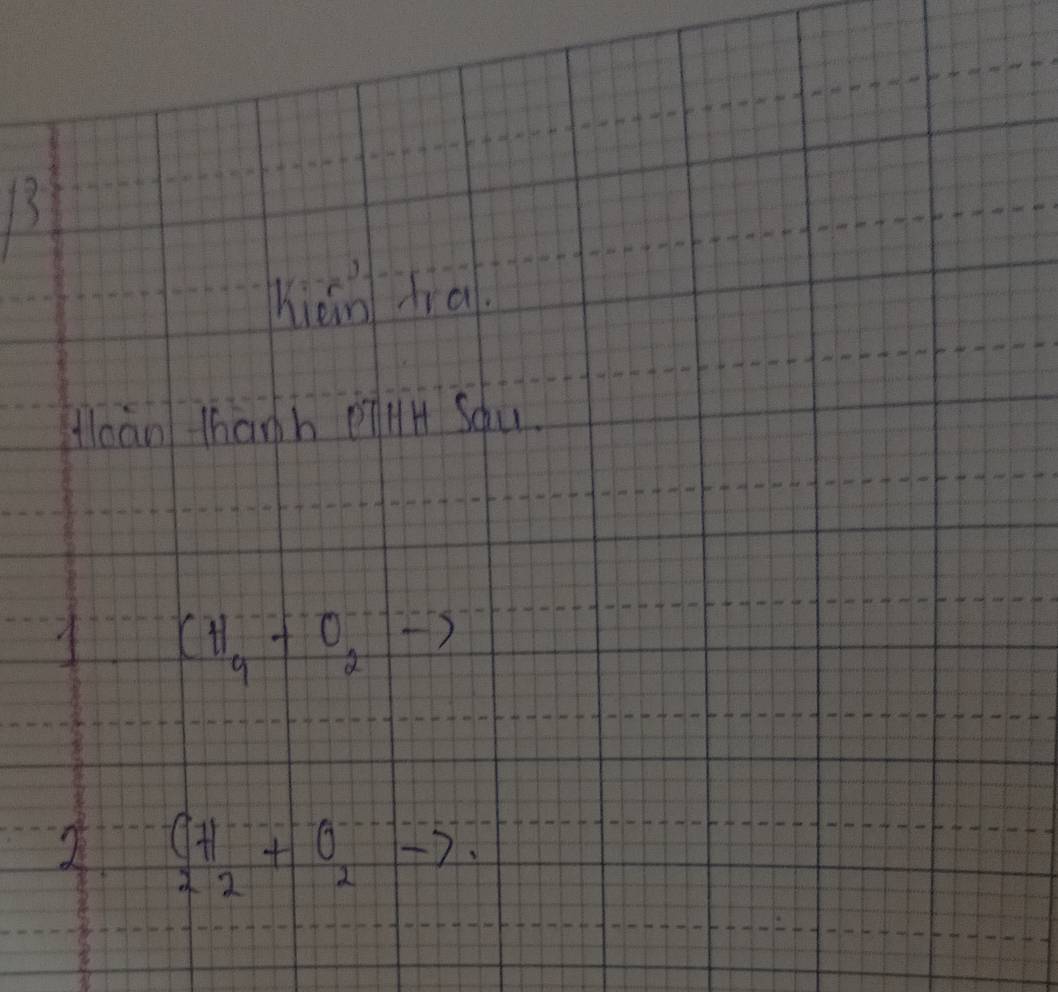 /3
Kiểm tra.
Hoàn thành PTHH sau.
1. CH₄ + O₂ ->
2. C₂H₂ + O₂ ->.